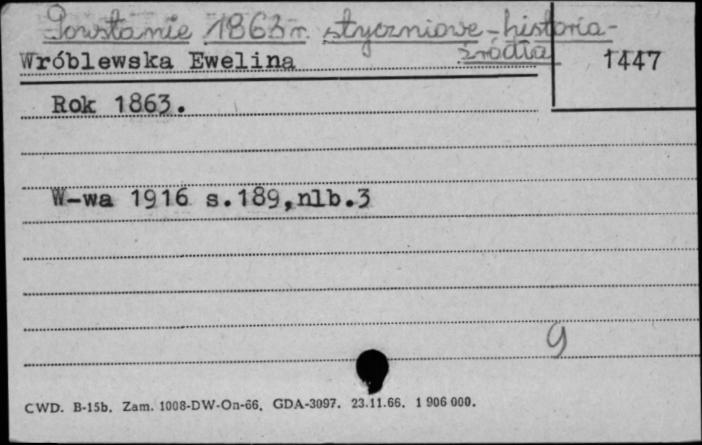 Powstanie 1863 r. styczniowe - historia -
źródła
Wróblewska Ewelina
1447
Rok 1863.
W-wa 1916 s.189,nlb.3
9
CWD. B-15b. Zam. 1008-DW-On-66. GDA-3097. 23.11.66. 1 906 000.